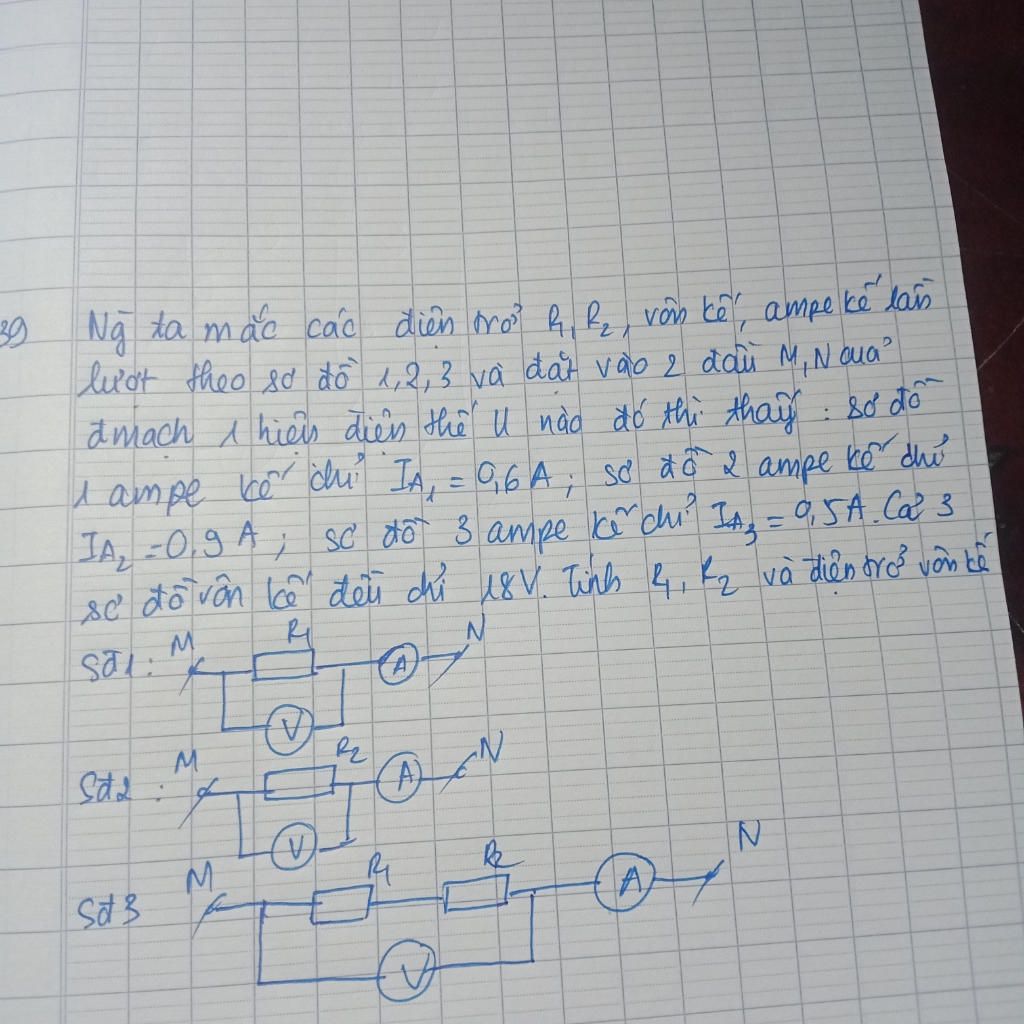 39 Ng̃ ta mắc các điện trở R₁, R₂, vôn kế, ampe kế lần
lượt theo sơ đồ 1,2,3 và đặt vào 2 đầu M,N của
đmạch 1 hiệu điện thế U nào đó thì thấy : sơ đồ
1 ampe kế chỉ I_A₁ = 0,6 A ; sơ đồ 2 ampe kế chỉ
I_A₂ = 0,9 A ; sơ đồ 3 ampe kế chỉ I_A₃ = 0,5 A. Cả 3
sơ đồ vôn kế đều chỉ 18V. Tính R₁, R₂ và điện trở vôn kế
Sđ1 : M R₁ A N
V
Sđ2 : M R₂ A N
V
Sđ3 M R₁ R₂ A N
V